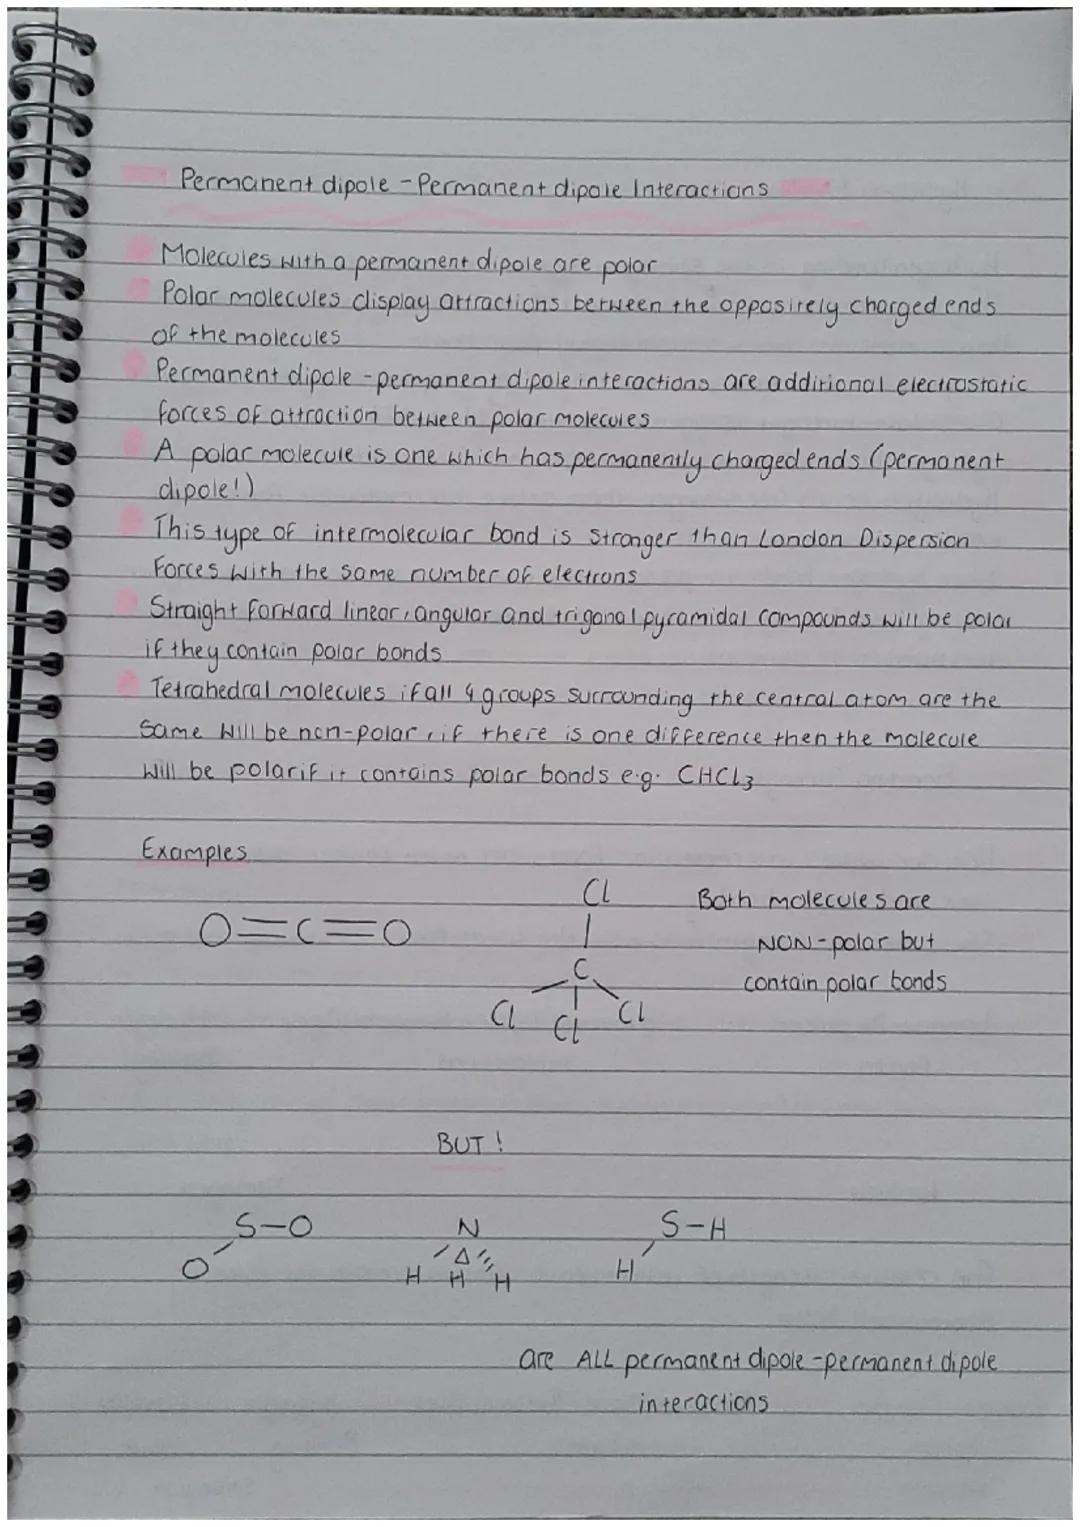 Permanent dipole - Permanent dipole Interactions
Molecules with a permanent dipole are polar
Polar molecules display attractions between the oppositely charged ends
of the molecules
Permanent dipole - permanent dipole interactions are additional electrostatic
forces of attraction between polar molecules
A polar molecule is one which has permanently charged ends (permanent
dipole!)
This type of intermolecular bond is stronger than London Dispersion
Forces with the same number of electrons
Straight forward linear, angular and trigonal pyramidal compounds will be polar
if they contain polar bonds
Tetrahedral molecules if all 4 groups surrounding the central atom are the
same will be non-polar, if there is one difference then the molecule
will be polar if it contains polar bonds e.g. CHCl3
Examples
O=C=O
Cl
C
Cl Cl Cl
Both molecules are
NON-polar but
contain polar bonds
BUT!
S-O
O
N
H H H
S-H
H
are ALL permanent dipole - permanent dipole
interactions